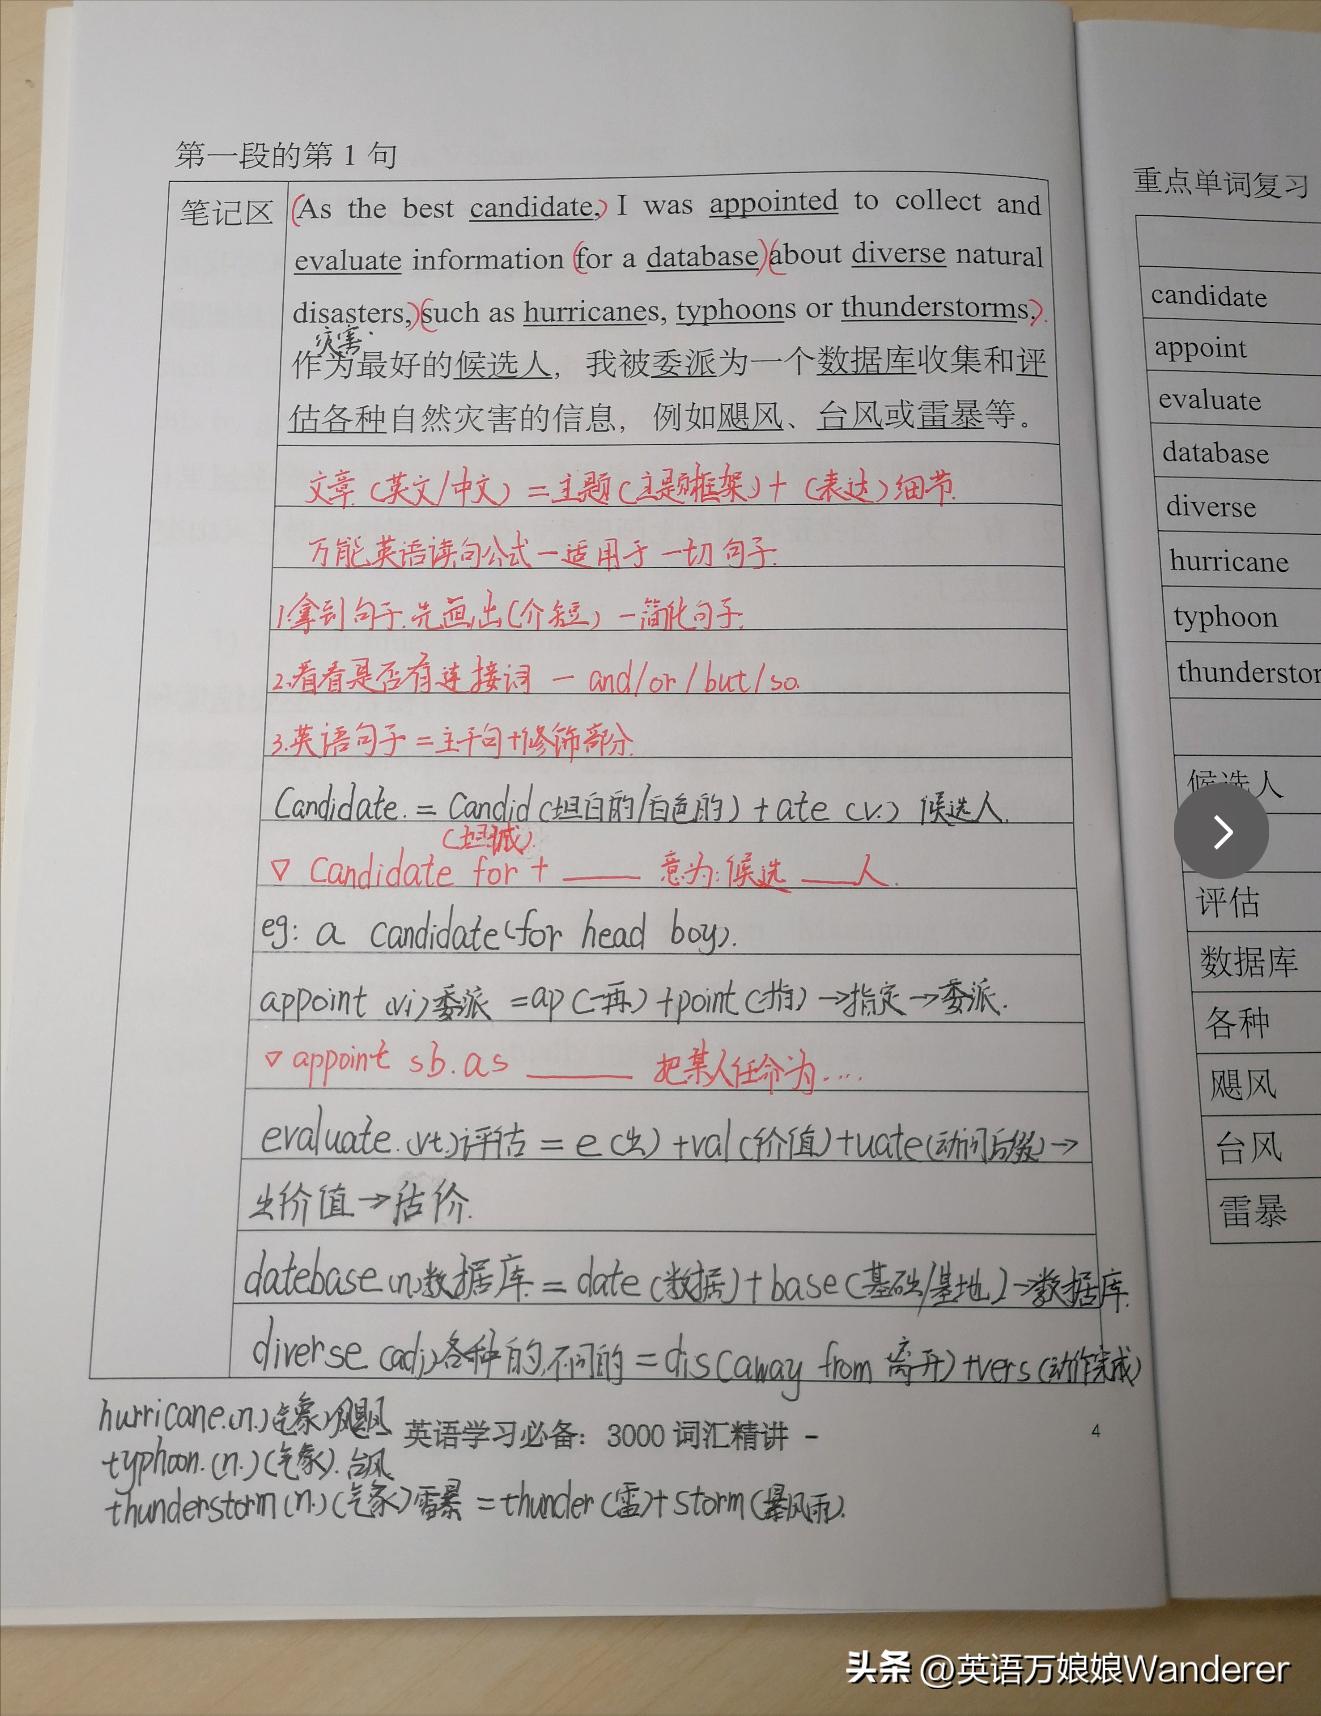 第一段的第 1 句
笔记区
(As the best candidate,) I was appointed to collect and
evaluate information (for a database)(about diverse natural
disasters,)(such as hurricanes, typhoons or thunderstorms,).
灾害.
作为最好的候选人，我被委派为一个数据库收集和评
估各种自然灾害的信息，例如飓风、台风或雷暴等。
文章（英文/中文）=主题（主题框架）+（表达）细节.
万能英语读句公式—适用于一切句子.
1.拿到句子.先画出（介短）—简化句子.
2.看看是否有连接词 — and/or/but/so.
3.英语句子=主干句+修饰部分.
Candidate. = Candid (坦白的/白色的) + ate (v.) 候选人.
(坦诚).
▽ Candidate for + ____ 意为:候选 ___人.
eg: a candidate (for head boy).
appoint (vi) 委派 = ap (一再) + point (指) → 指定 → 委派.
▽ appoint sb. as ______ 把某人任命为....
evaluate.(vt.)评估 = e (出) + val (价值) + uate (动词后缀) →
出价值 → 估价.
datebase (n)数据库. = date (数据) + base (基础/基地) → 数据库.
diverse (adj)各种的,不同的 = dis (away from 离开) + vers (动作完成)
hurricane.(n.)(气象)飓风
typhoon.(n.)(气象).台风
thunderstorm (n.) (气象)雷暴 = thunder (雷) + storm (暴风雨).
英语学习必备：3000 词汇精讲 -
4
重点单词复习
candidate
appoint
evaluate
database
diverse
hurricane
typhoon
thunderstor
候选人
评估
数据库
各种
飓风
台风
雷暴
头条 @英语万娘娘Wanderer